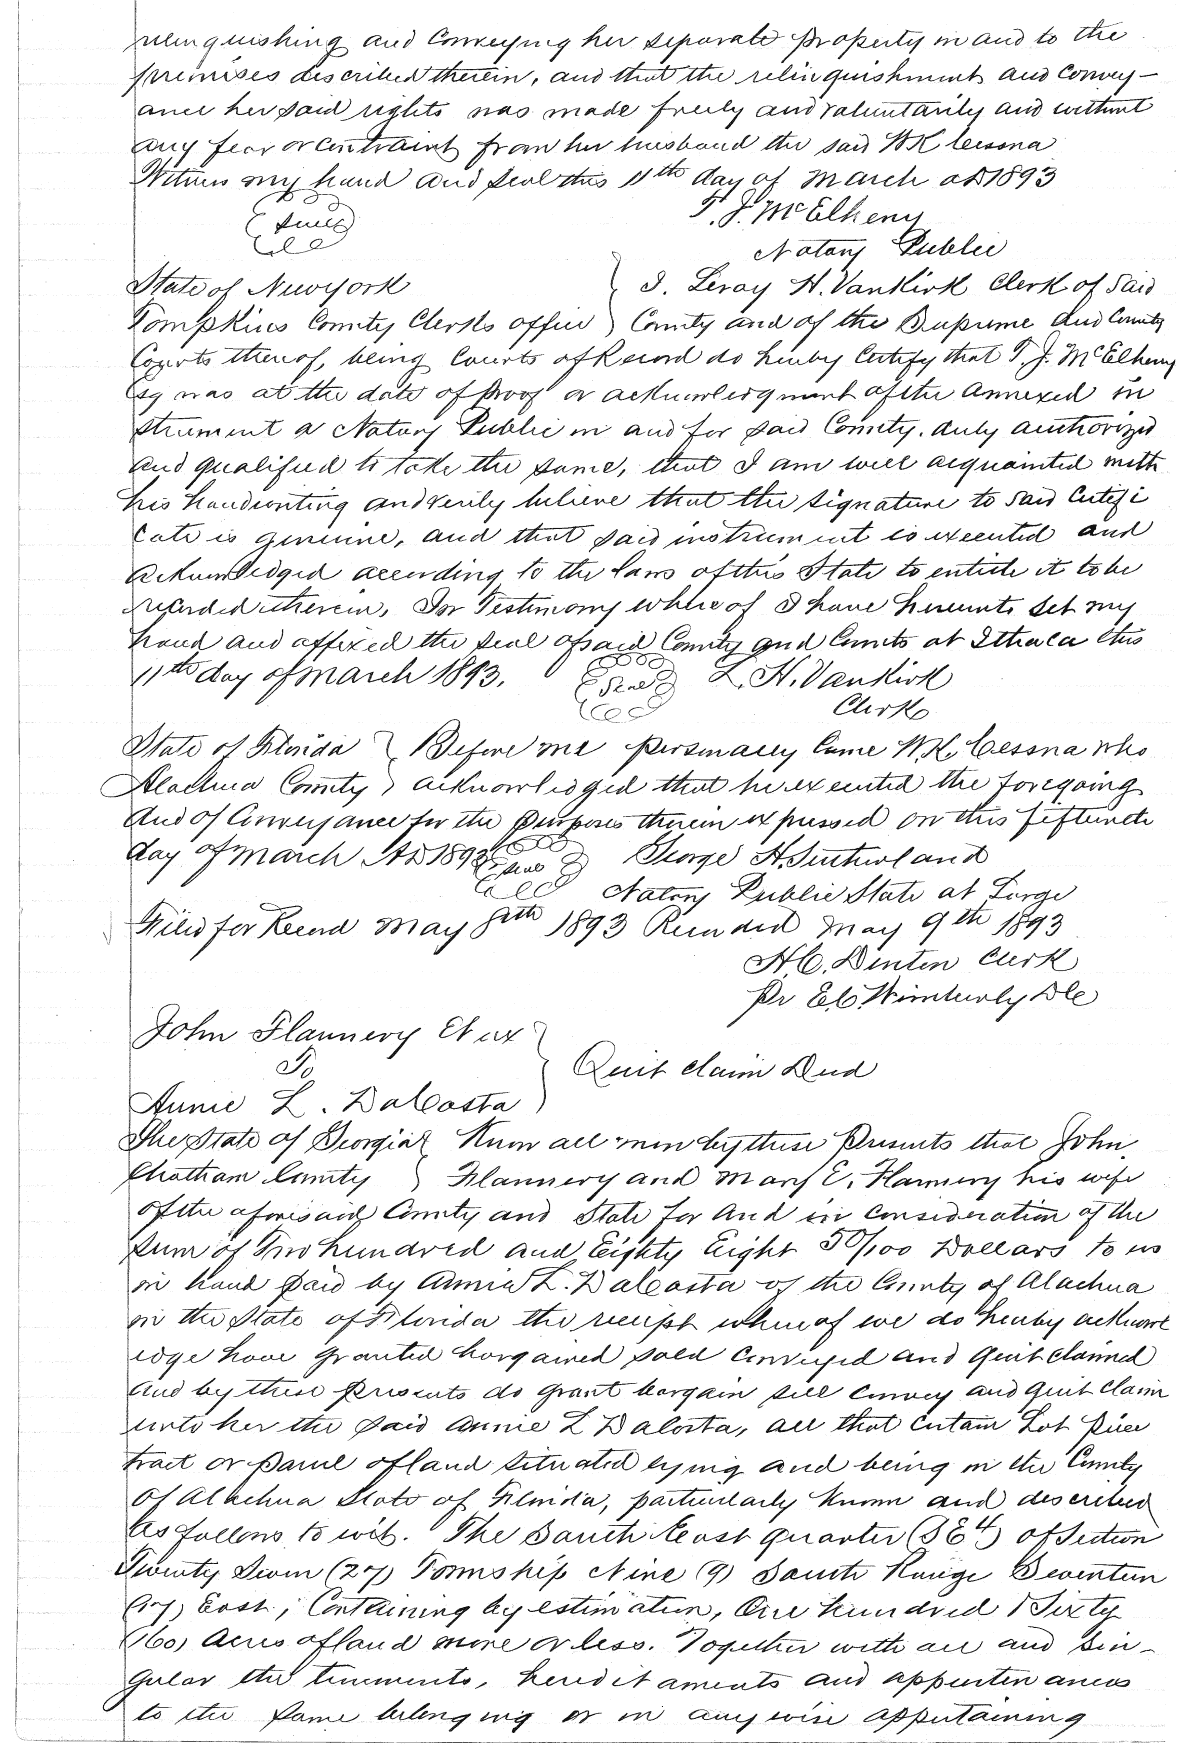 relinquishing and Conveying her separate property in and to the
premises described therein, and that the relinquishment and Convey-
ance her said rights was made freely and voluntarily and without
any fear or contraint from her husband the said W K Cessna
Witness my hand and seal this 11th day of March AD 1893
T. J. McElheny
Seal
Notary Public
State of New York } I. Leroy H. VanKirk Clerk of Said
Tompkins County Clerks office } County and of the Supreme and County
Courts thereof, being Courts of Record do hereby Certify that T. J. McElheny
Esq was at the date of proof or acknowledgment of the annexed in
strument a Notary Public in and for said County. duly authorized
and qualified to take the same, that I am well acquainted with
his handwriting and verily believe that the signature to said Certifi
cate is genuine, and that said instrument is executed and
acknowledged according to the laws of this State to entitle it to be
recorded therein, In Testimony whereof I have hereunto set my
hand and affixed the seal of said County and Courts at Ithaca this
11th day of March 1893. Seal L. H. VanKirk
Clerk
State of Florida } Before me personally Came W. K. Cessna who
Alachua County } acknowledged that he executed the foregoing
deed of Conveyance for the purposes therein expressed on this fifteenth
day of March AD 1893 Seal George H. Sutherland
Notary Public State at Large
Filed for Record May 8th 1893 Recorded May 9th 1893
H. C. Denton Clerk
Pr E. C. Wimberly DC
John Flannery Et ux }
To } Quit Claim Deed
Annie L. DaCosta }
The State of Georgia } Know all men by these Presents that John
Chatham County } Flannery and Mary E. Flannery his wife
of the aforesaid County and State for and in consideration of the
Sum of Two hundred and Eighty Eight 50/100 Dollars to us
in hand paid by Annie L. DaCosta of the County of Alachua
in the State of Florida the receipt whereof we do hereby acknowl
edge have granted bargained sold conveyed and Quit claimed
and by these presents do grant bargain sell convey and Quit claim
unto her the said Annie L DaCosta, all that certain Lot piece
tract or parcel of land situated lying and being in the County
of Alachua State of Florida, particularly known and described
as follows to wit. The South East quarter (SE4) of Section
Twenty Seven (27) Township Nine (9) South Range Seventeen
(17) East, Containing by estimation, One hundred & Sixty
(160) Acres of land more or less. Together with all and Sin-
gular the tenements, hereditaments and appurtenances
to the same belonging or in any wise appertaining